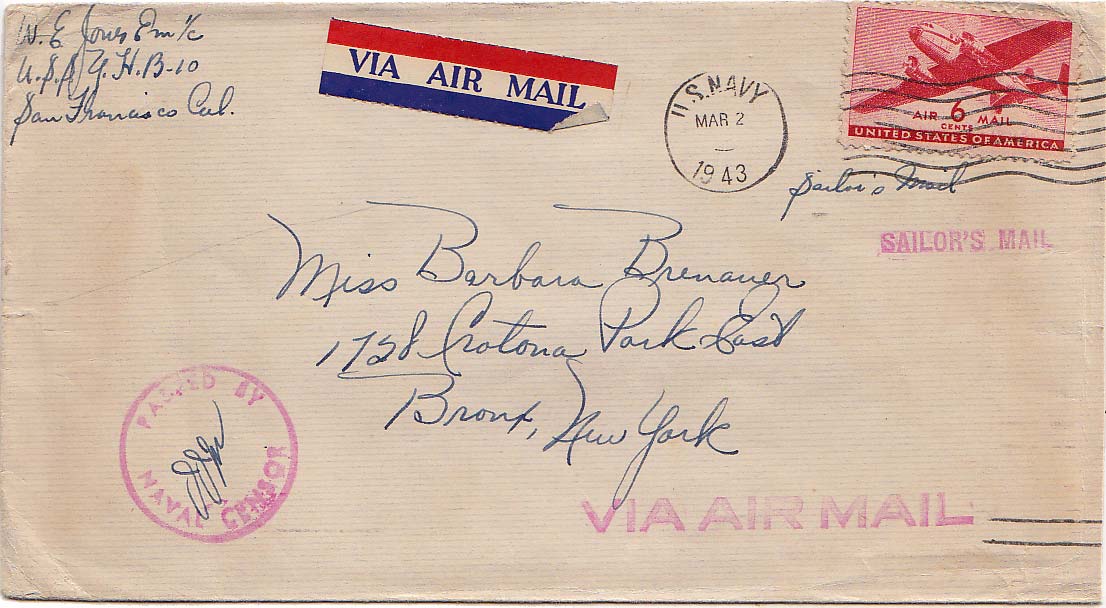 W. E. Jones Em 1/c
U.S.S. Y.H.B-10
San Francisco Cal.
VIA AIR MAIL
U.S. NAVY
MAR 2
1943
AIR 6 MAIL
CENTS
UNITED STATES OF AMERICA
Sailor's Mail
SAILOR'S MAIL
Miss Barbara Brenauer
1728 Crotona Park East
Bronx, New York
PASSED BY
NAVAL CENSOR
VIA AIR MAIL